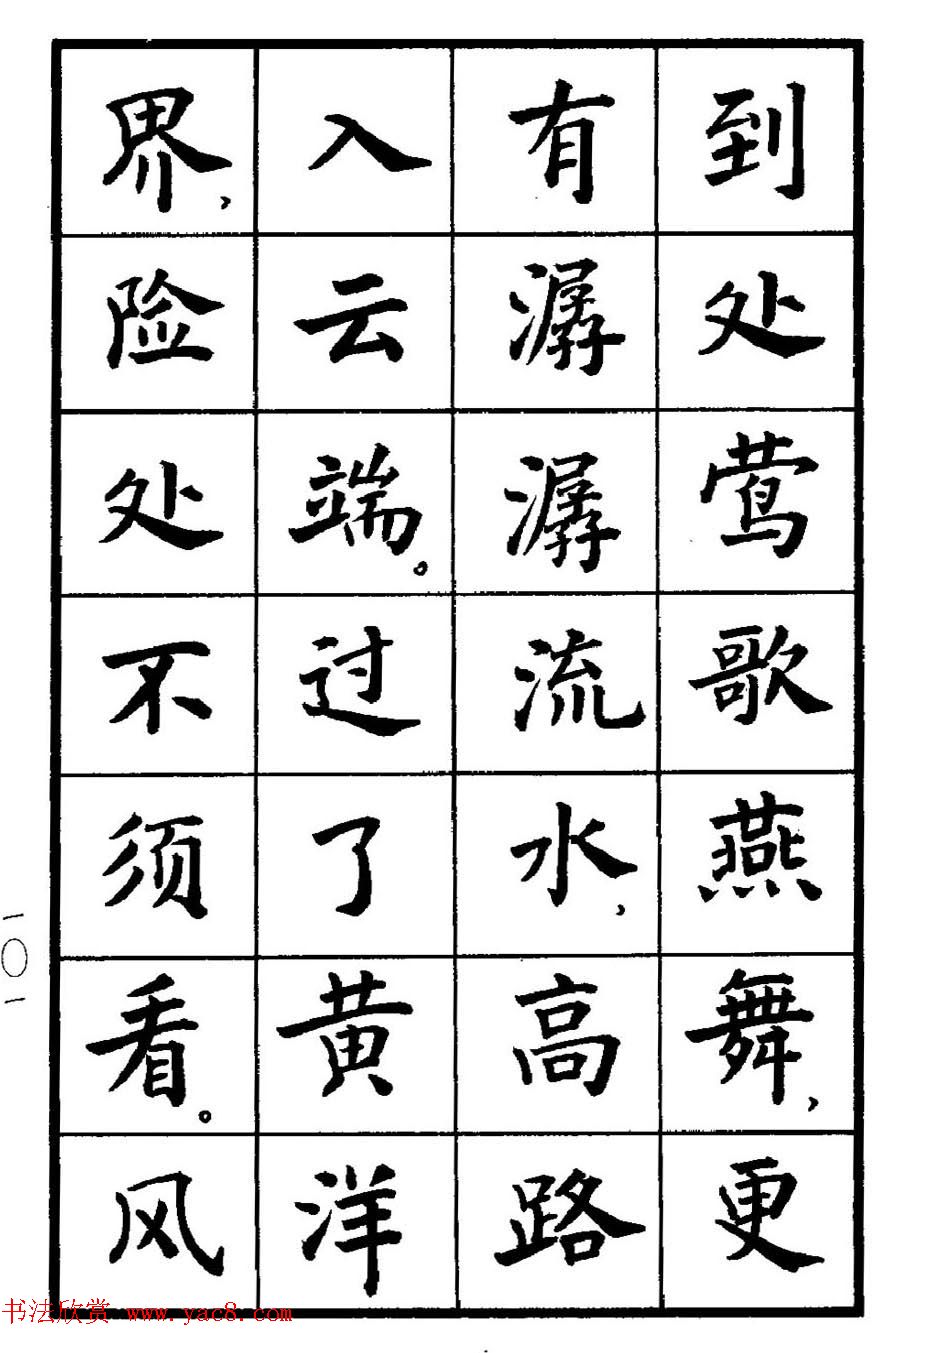 到处莺歌燕舞,更
有潺潺流水,高路
入云端。过了黄洋
界,险处不须看。风
一〇一
书法欣赏 www.yac8.com